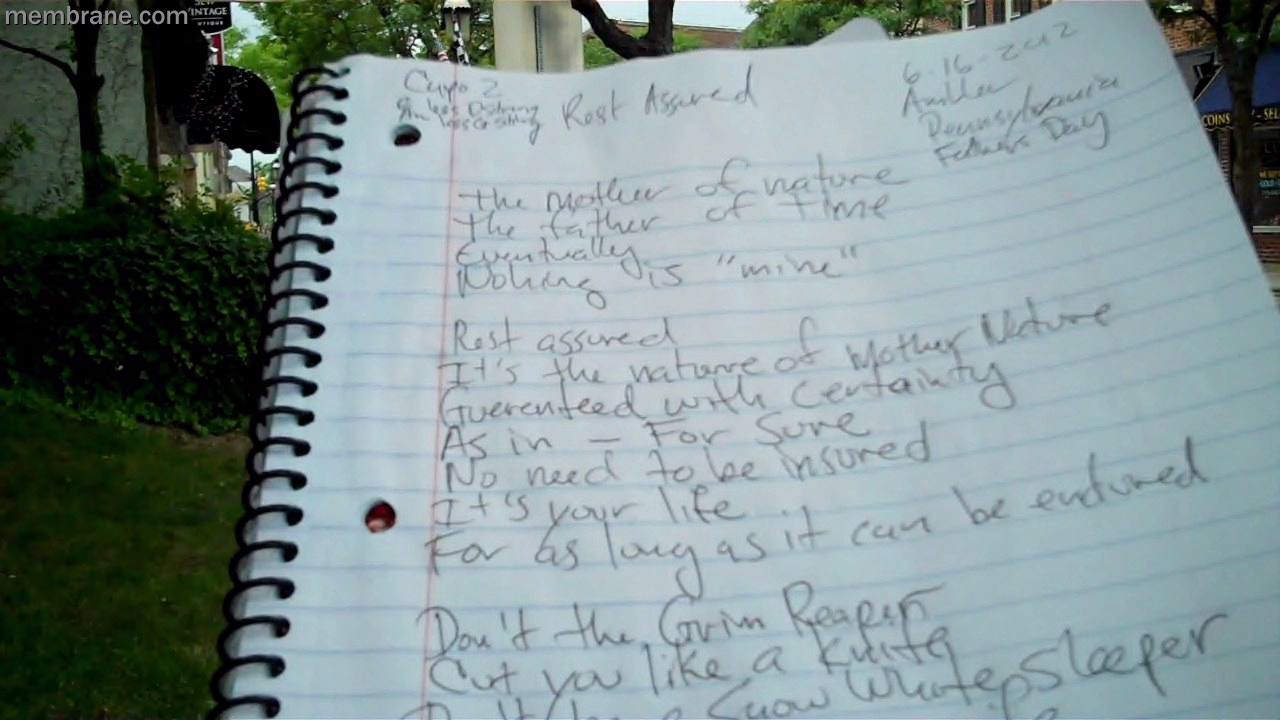 membrane.com
VINTAGE
COINS
Capo 2
Rest Assured
6-16-2012
Ambler
Pennsylvania
Fathers Day
the mother of nature
the father of time
Eventually
Nothing is "mine"
Rest assured
It's the nature of Mother Nature
Guerenteed with Certainty
As in — For Sure
No need to be insured
It's your life
For as long as it can be endured
Don't the Grim Reaper
Cut you like a Knife
Snow White Sleeper